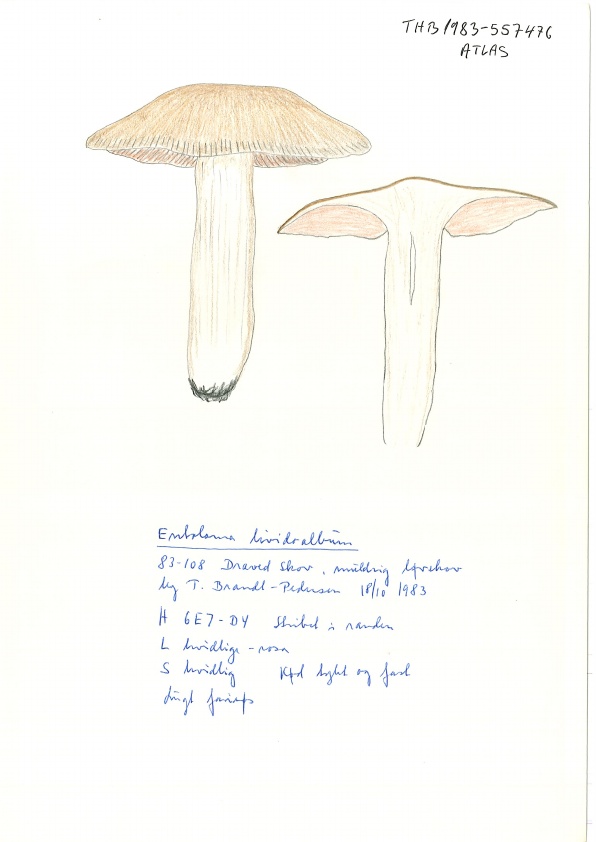 THB/1983-557476
ATLAS
Entoloma lividoalbum
83-108 Draved Skov, muldrig løvskov
leg T. Brandt-Pedersen 18/10 1983
H 6E7-D4 Stribet i randen
L hvidlige-rosa
S hvidlig Kød tykt og fast
Lugt